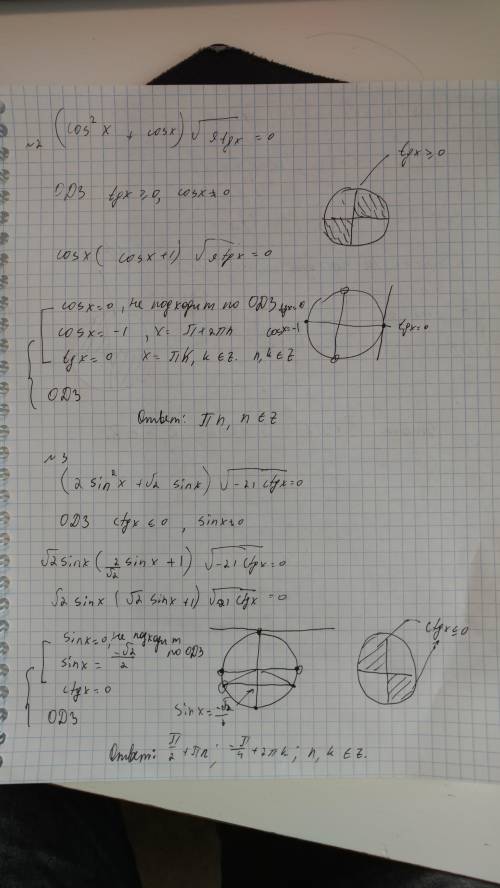 №2 (cos²x + cosx) √(9tgx) = 0
tgx ≥ 0
ОДЗ tgx ≥ 0, cosx ≠ 0
cosx( cosx+1) √(9tgx) = 0
cosx=0, не подходит по ОДЗ
tgx=0
cosx = -1 , x = π+2πn
cosx=-1
tgx=0
tgx = 0 x = πk, k ∈ z. n, k ∈ z
ОДЗ
Ответ: πn, n ∈ z
№3
(2 sin²x + √2 sinx) √(-21 ctgx) = 0
ОДЗ ctgx ≤ 0 , sinx ≠ 0
√2 sinx (2/√2 sinx + 1) √(-21 ctgx) = 0
√2 sinx (√2 sinx+1) √(-21 ctgx) = 0
sinx=0, не подходит по ОДЗ
ctgx ≤ 0
sinx = -√2/2
ctgx = 0
sinx = -√2/2
ОДЗ
Ответ: π/2 + πn; -π/4 + 2πk; n, k ∈ z.